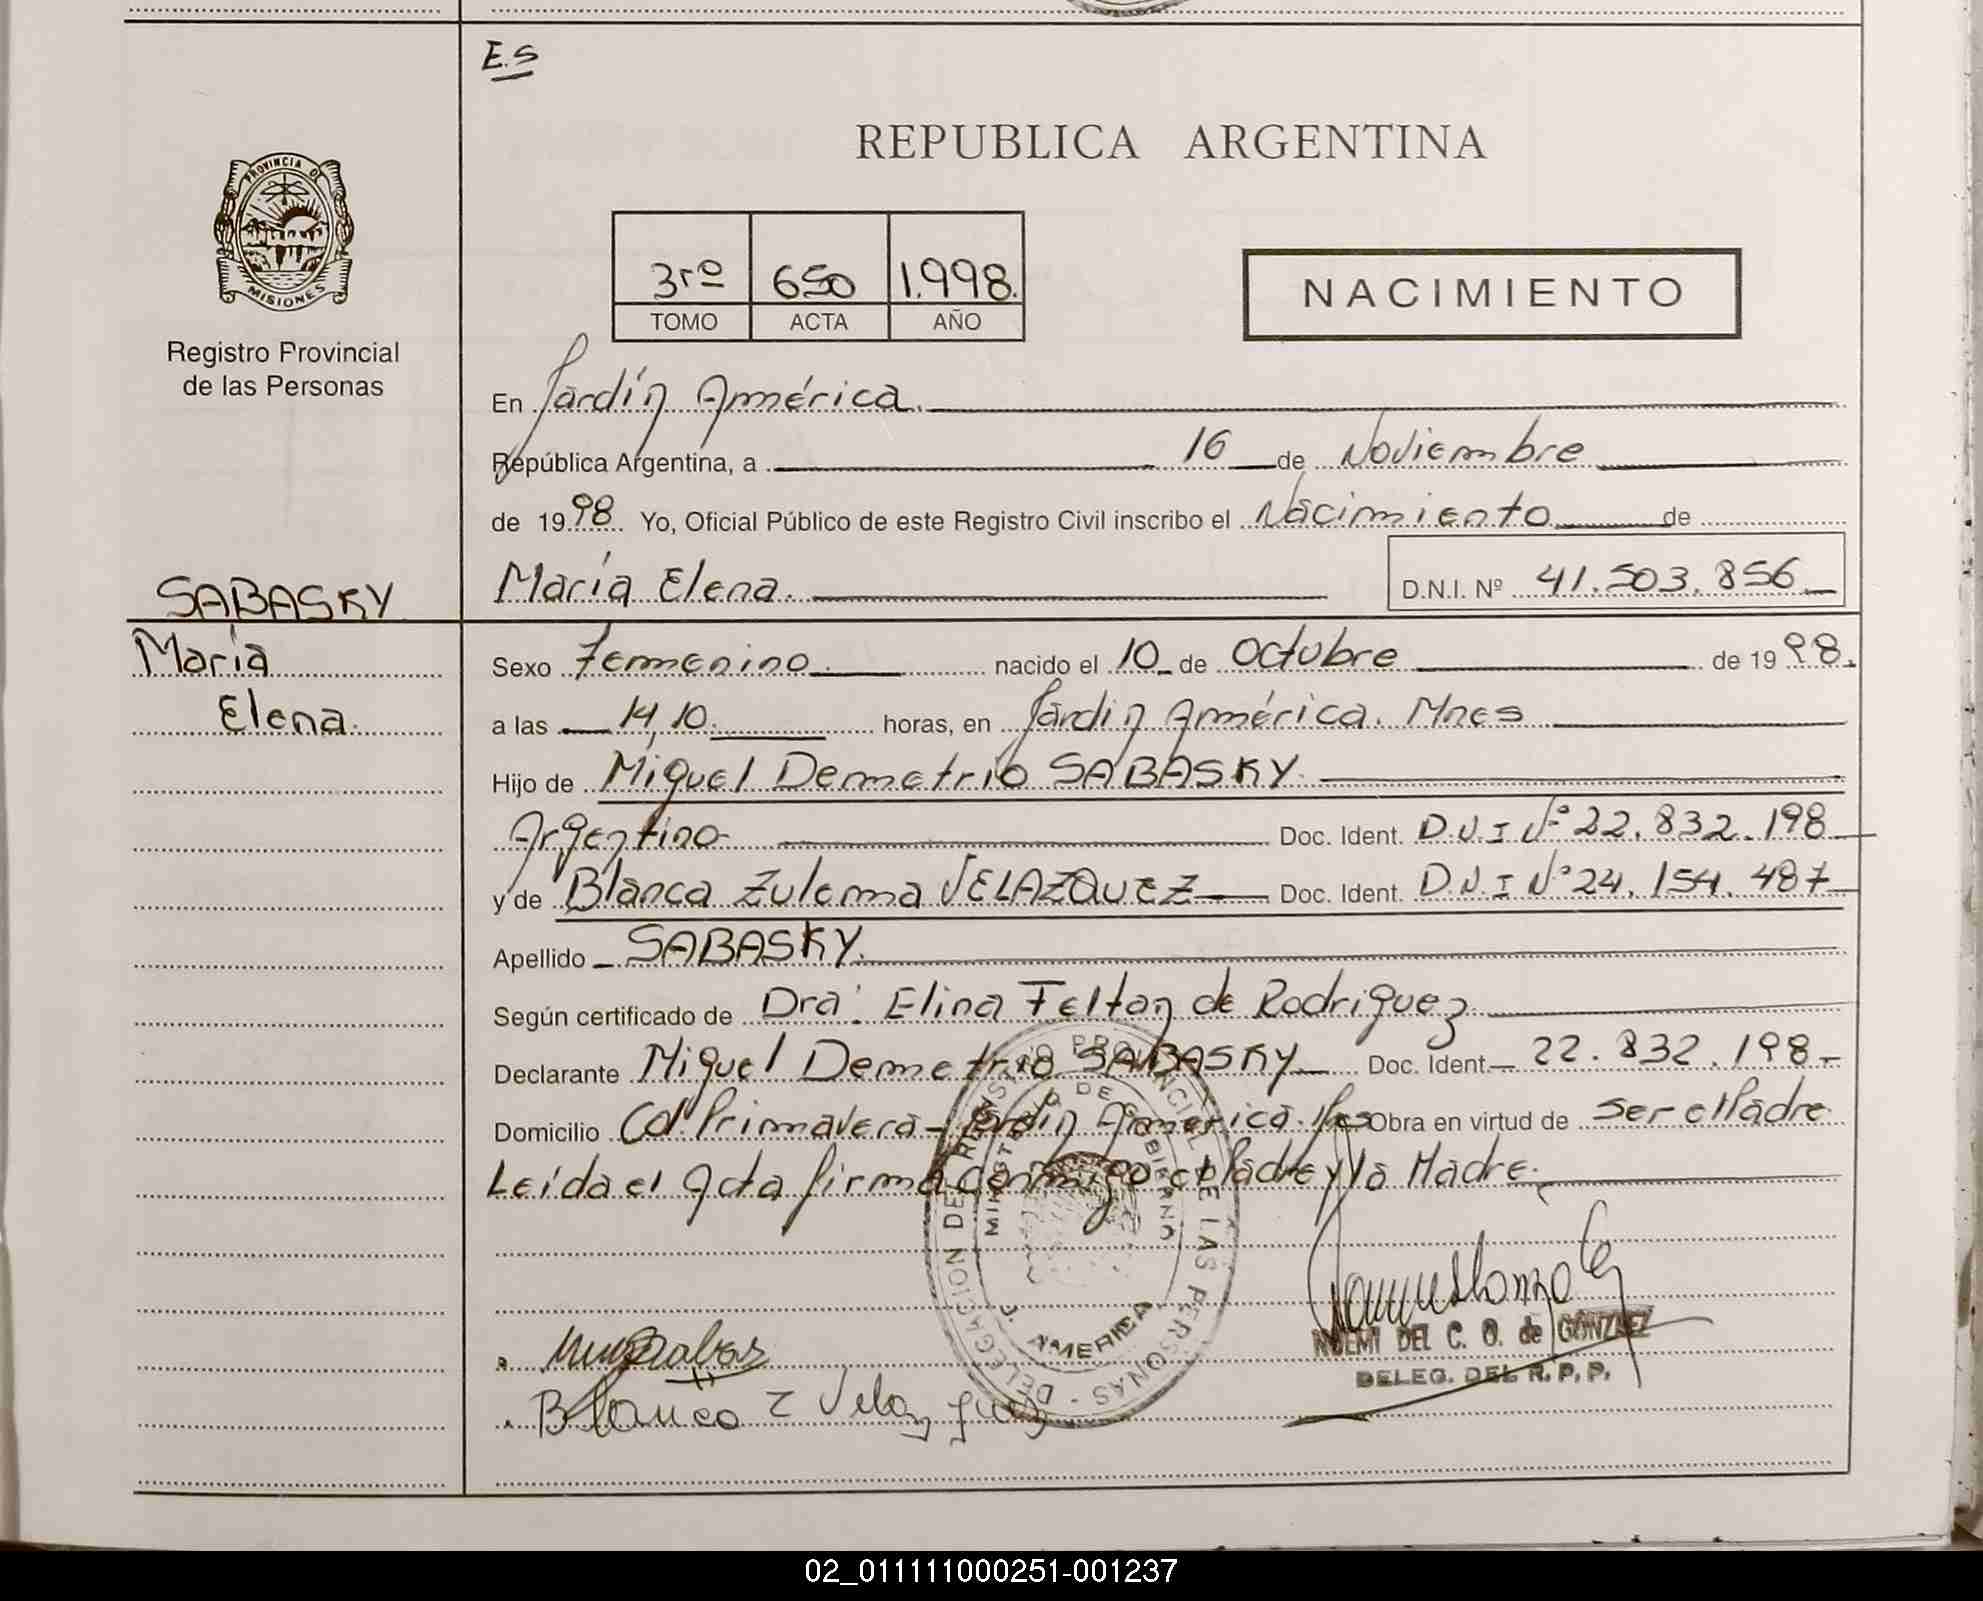 E.S
REPUBLICA ARGENTINA
PROVINCIA DE
MISIONES
Registro Provincial
de las Personas
3ro 650 1.998.
TOMO ACTA AÑO
NACIMIENTO
En Jardín América.
República Argentina, a 16 de Noviembre
de 1998 Yo, Oficial Público de este Registro Civil inscribo el Nacimiento de
María Elena. D.N.I. Nº 41.503.856
SABASKY
María
Elena.
Sexo Femenino. nacido el 10 de Octubre de 1998.
a las 14,10. horas, en Jardín América. Mnes
Hijo de Miguel Demetrio SABASKY.
Argentino Doc. Ident. D.N.I Nº 22.832.198
y de Blanca Zulema VELAZQUEZ Doc. Ident. D.N.I Nº 24.154.487
Apellido SABASKY.
Según certificado de Dra. Elina Feltan de Rodriguez
Declarante Miguel Demetrio SABASKY Doc. Ident. 22.832.198
Domicilio Col Primavera - Jardín América. Obra en virtud de ser el Padre
Leída el Acta firma conmigo el Padre y la Madre.
DELEGACION DEL REGISTRO PROVINCIAL DE LAS PERSONAS
MINISTERIO DE GOBIERNO
J. AMERICA
NOEMI DEL C. O. de GONZALEZ
DELEG. DEL R.P.P.
Blanca Z Velazquez
02_011111000251-001237